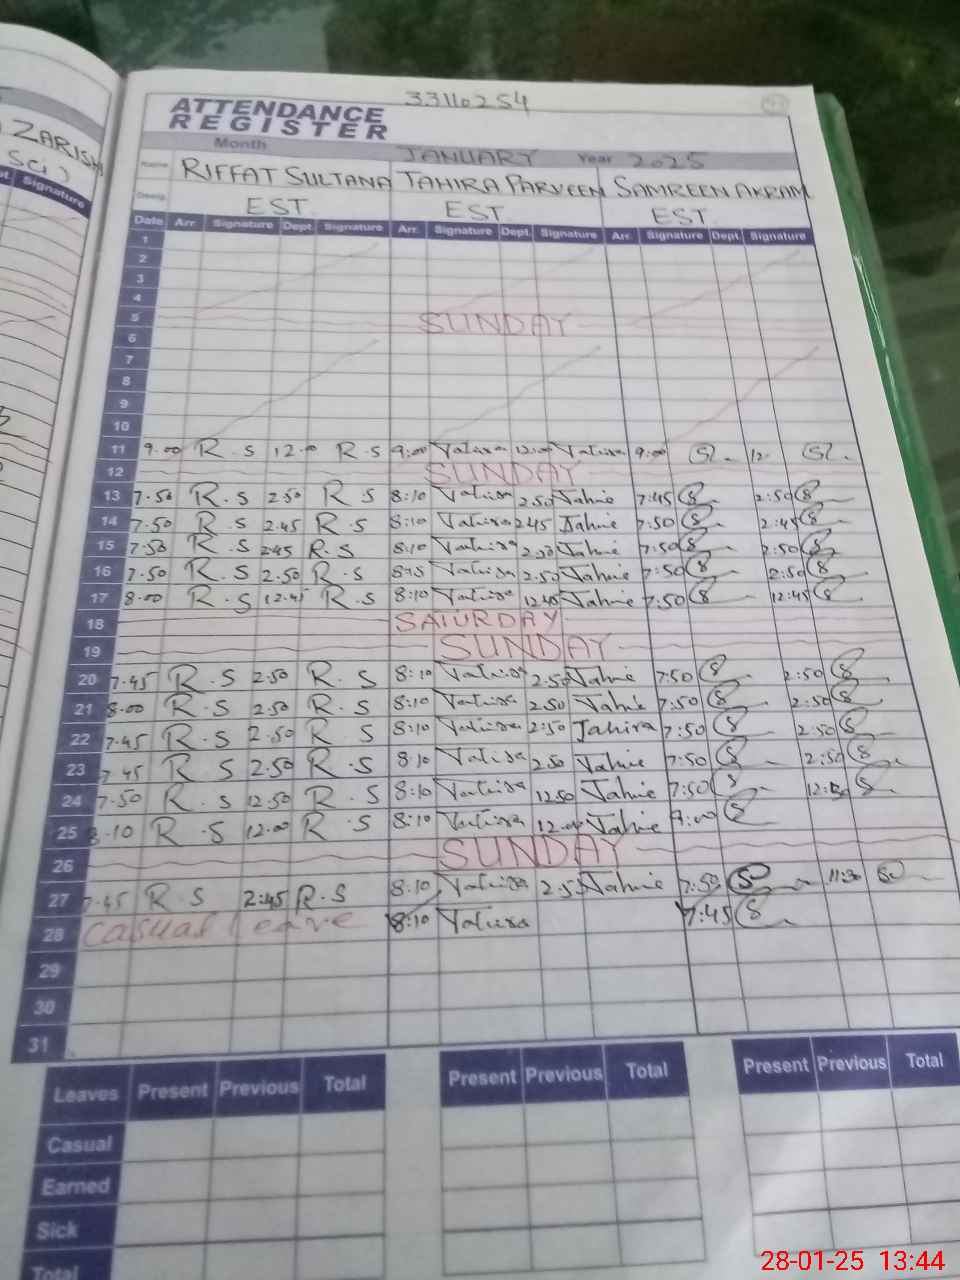 ZARISH
Signature
33110254
ATTENDANCE
REGISTER
Month JANUARY Year 2025
Name RIFFAT SULTANA TAHIRA PARVEEN SAMREEN AKRAM
EST. EST. EST.
Date Arr. Signature Dept. Signature Arr. Signature Dept. Signature Arr. Signature Dept. Signature
1
2
3
4
5 SUNDAY
6
7
8
9
10
11 9.00 R.S 12.00 R.S 9:00 Tahira 12:00 Tahira 9:00 12
12 SUNDAY
13 7.50 R.S 2.50 R.S 8:10 Tahira 2.50 Tahira 7:45 2:50
14 7.50 R.S 2.45 R.S 8:10 Tahira 2.45 Tahira 7:50 2:45
15 7.50 R.S 2.45 R.S 8:10 Tahira 2.50 Tahira 7:50 2:50
16 7.50 R.S 2.50 R.S Tahira 2.50 Tahira 7:50 2:50
17 8.00 R.S 12.45 R.S 8:10 Tahira Tahira 7:50 12:45
18 SATURDAY
19 SUNDAY
20 7.45 R.S 2.50 R.S 8:10 Tahira 2.50 Tahira 7:50 2:50
21 8.00 R.S 2.50 R.S 8:10 Tahira 2.50 Tahira 7:50 2:50
22 7.45 R.S 2.50 R.S 8:10 Tahira 2:50 Tahira 7:50 2:50
23 7.45 R.S 2.50 R.S 8:10 Tahira 2.50 Tahira 7:50 2:50
24 7.50 R.S 12.50 R.S 8:10 Tahira 12.50 Tahira 7:50
25 8.10 R.S 12.00 R.S 8:10 Tahira 12.00 Tahira 9:00
26 SUNDAY
27 7.45 R.S 2:45 R.S 8:10 Tahira Tahira 7:50 11:30
28 casual leave 8:10 Tahira 7:45
29
30
31
Leaves Present Previous Total Present Previous Total Present Previous Total
Casual
Earned
Sick
Total
28-01-25 13:44